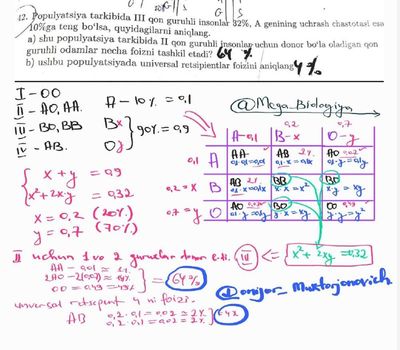 12. Populyatsiya tarkibida III qon guruhli insonlar 32%, A genining uchrash chastotasi esa
10%ga teng bo'lsa, quyidagilarni aniqlang.
a) shu populyatsiya tarkibida II qon guruhli insonlar uchun donor bo'la oladigan qon
guruhli odamlar necha foizni tashkil etadi? 64%
b) ushbu populyatsiyada universal retsipientlar foizini aniqlang 4%
@Mega_Biologiya
I - OO
II - AO, AA.
III - BO, BB
IV - AB.
A - 10% = 0,1
Bx
Oy
90% = 0,9
0,2 0,7
A-0,1 B-x O-y
0,1 A AA 0,1·0,1=0,01 AB 2% 0,1·x=0,1x AO 0,1·y=0,1y
0,2=x B AB 2% 0,1·x=0,1x BB x·x=x² BO x·y=xy
0,7=y O AO 0,1·y=0,1y BO y·x=xy OO 0,49 y·y=y²
x + y = 0,9
x²+2xy = 0,32
x = 0,2 (20%)
y = 0,7 (70%)
III <= x² + 2xy = 0,32
II uchun 1 va 2 guruhlar donor
AA = 0,01 = 1%
2AO = 2(0,07) = 14%
OO = 0,49 = 49%
= 64%
universal retsepent 4 ni foizi.
AB 0,2·0,1=0,02=2%
0,2·0,1=0,02=2%
= 4%
Doniyor_Muxtorjonovich